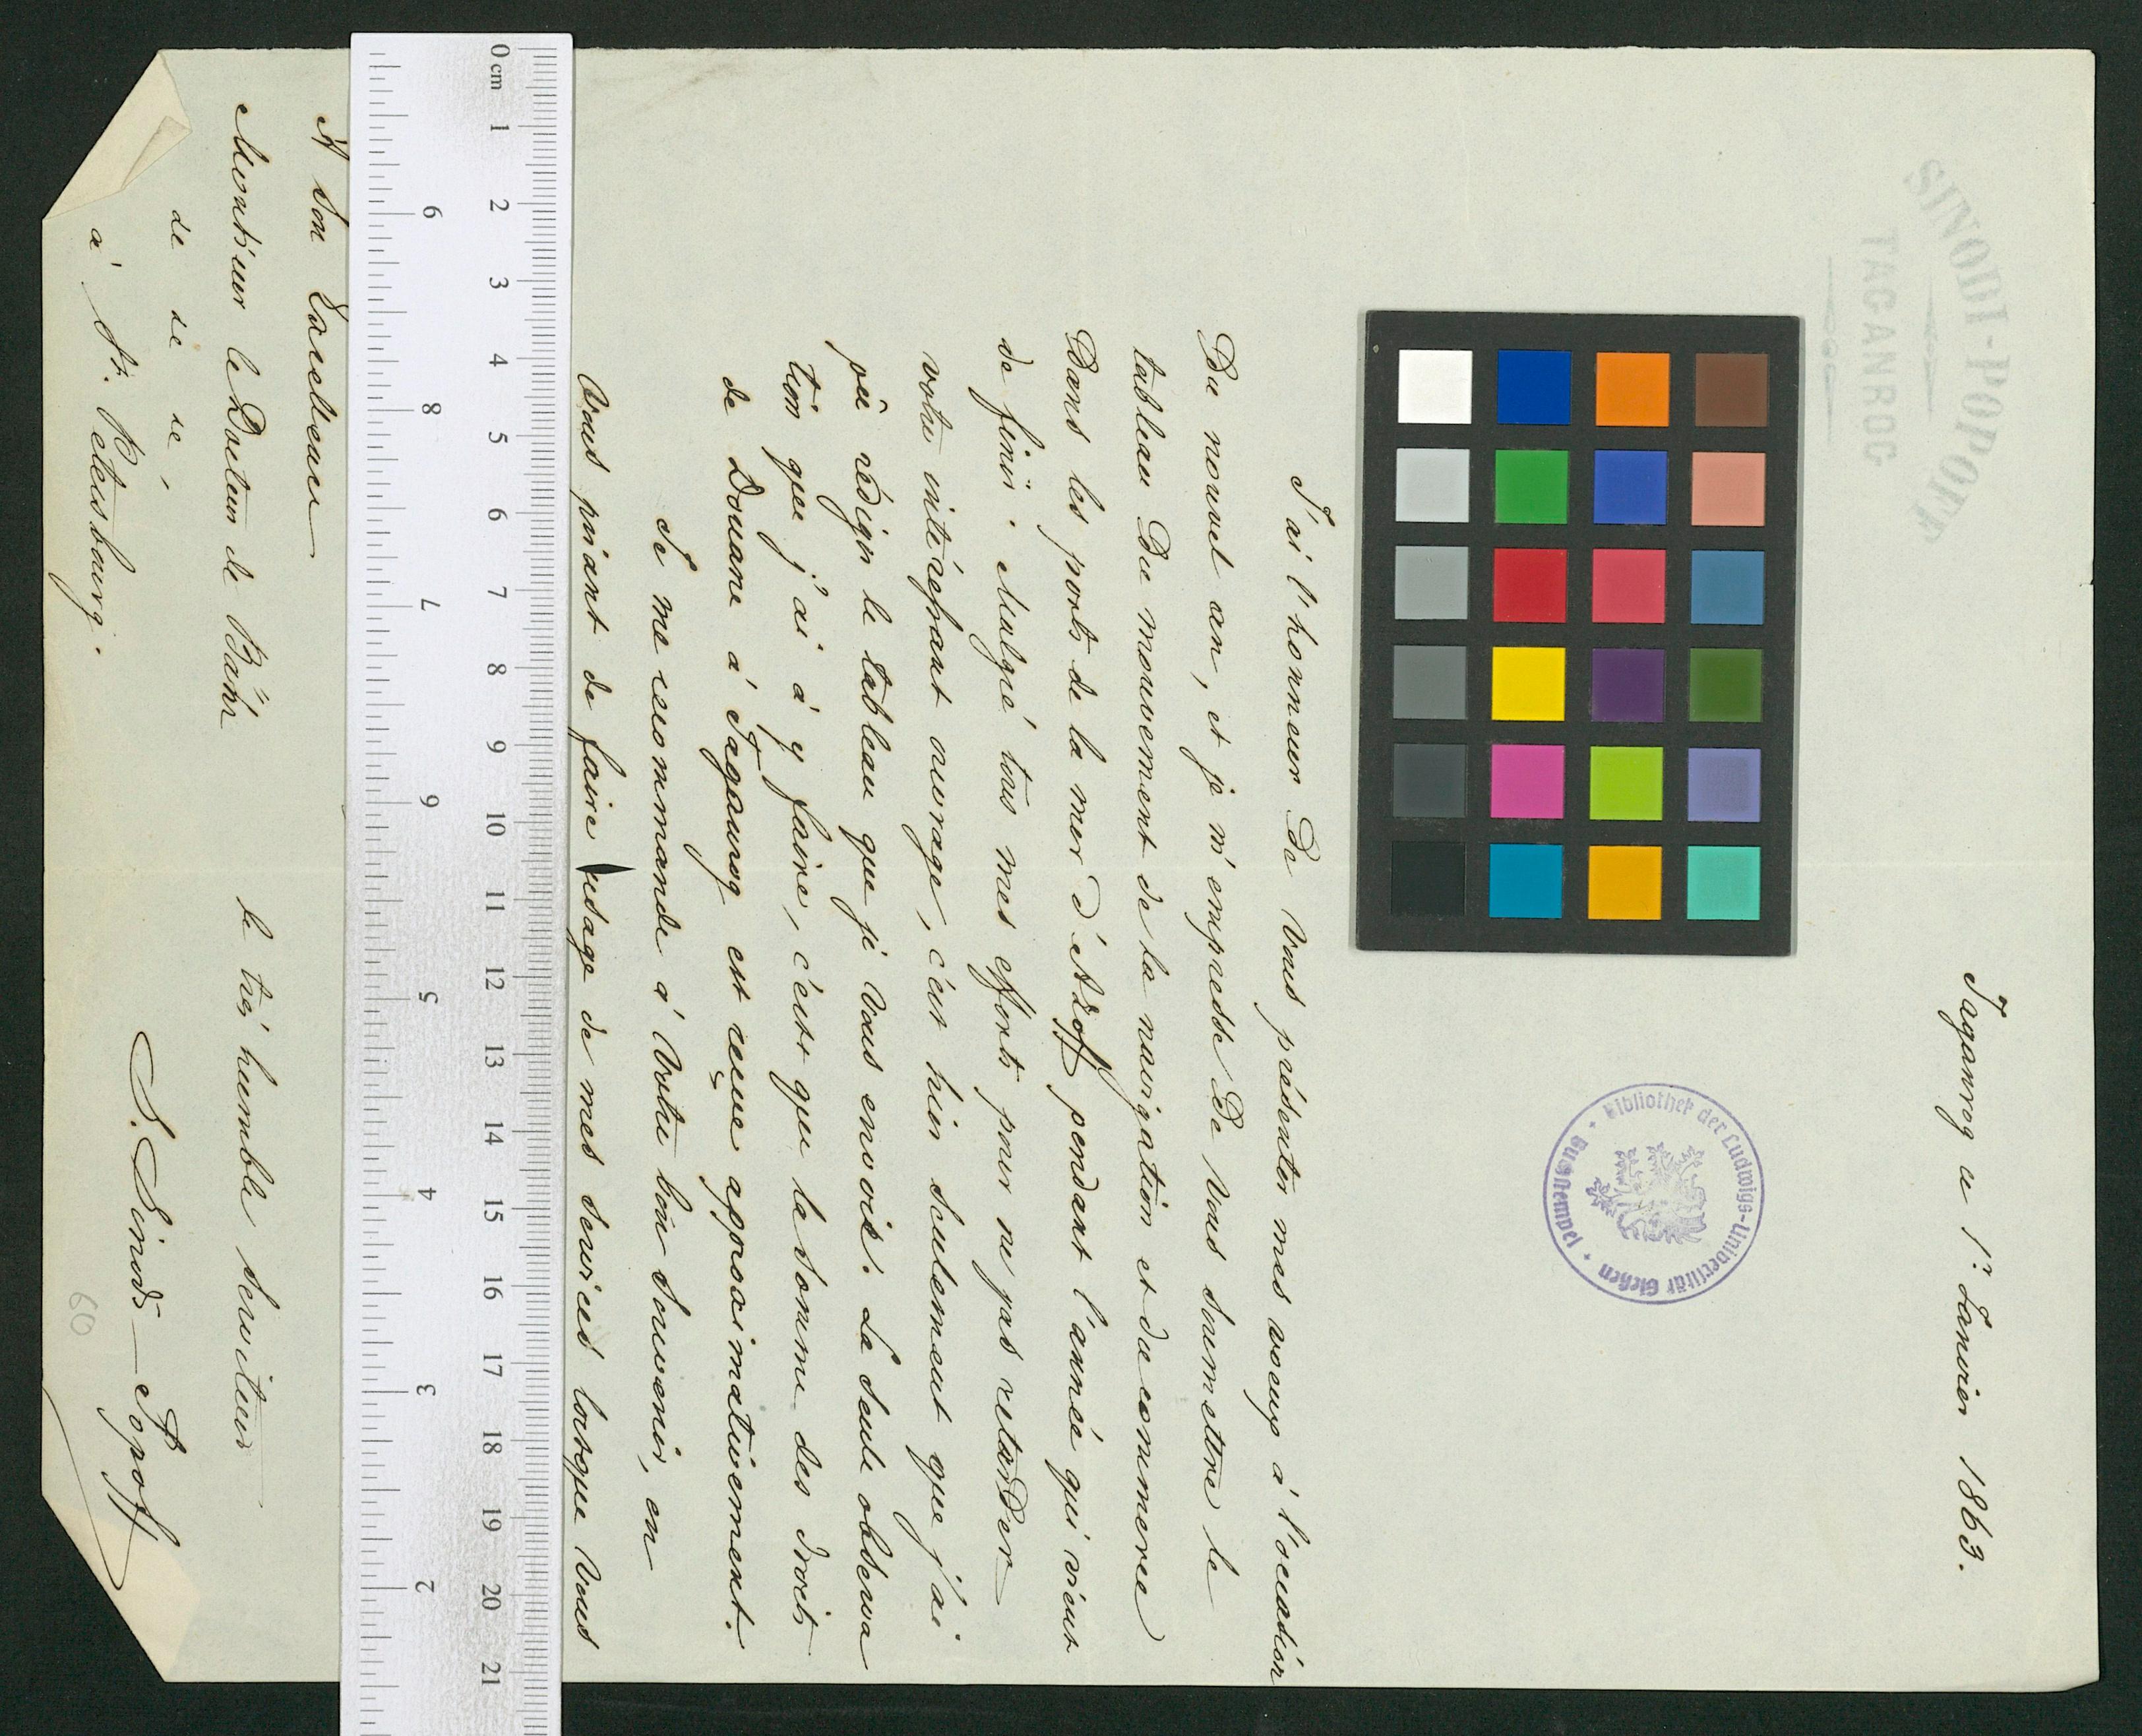 SINODI-POPOFF
TAGANROG
Taganrog ce 1r. Janvier 1863.
Bibliothek der Ludwigs-Universität Gießen
Justempel
J'ai l'honneur de Vous présenter mes voeux à l'occasion
du nouvel an, et je m'empresse de Vous soumettre le
tableau du mouvement de la navigation et du commerce
dans les ports de la mer d'Azoff pendant l'année qui vient
de finir. Malgré tous mes efforts pour ne pas retarder
votre intéressant ouvrage, c'est hier seulement que j'ai
pû rédiger le tableau que je Vous envois. La seule observa
tion que j'ai à y faire, c'est que la somme des droits
de Douane à Taganrog est reçue approximativement.
Je me recommande à Votre bon souvenir, en
Vous priant de faire usage de mes services lorsque Vous
A Son Excellence
Monsieur le Docteur de Baehr
de de de
à St. Petersbourg.
le très humble serviteur
S. Sinodi-Popoff
60
0 cm 1 2 3 4 5 6 7 8 9 10 11 12 13 14 15 16 17 18 19 20 21
9 8 7 6 5 4 3 2